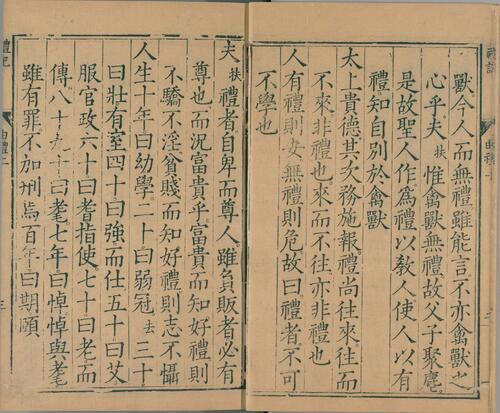 獸今人而無禮雖能言不亦禽獸之
心乎夫扶惟禽獸無禮故父子聚麀
是故聖人作為禮以教人使人以有
禮知自別於禽獸
太上貴德其次務施報禮尚往來往而
不來非禮也來而不往亦非禮也
人有禮則安無禮則危故曰禮者不可
不學也
夫扶禮者自卑而尊人雖負販者必有
尊也而況富貴乎富貴而知好禮則
不驕不淫貧賤而知好禮則志不懾
人生十年曰幼學二十曰弱冠去三十
曰壯有室四十曰強而仕五十曰艾
服官政六十曰耆指使七十曰老而
傳八十九十曰耄七年曰悼悼與耄
雖有罪不加刑焉百年曰期頤
禮記
曲禮上
三